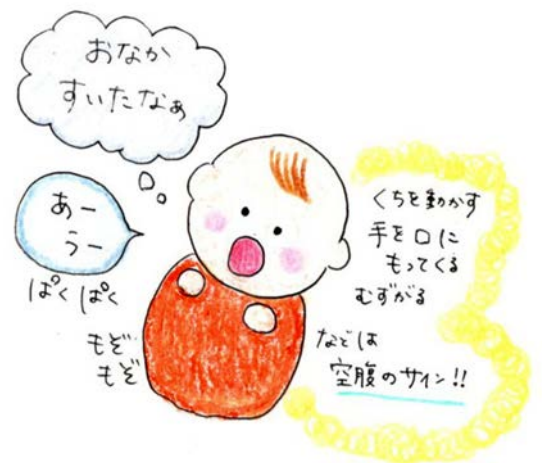 おなか
すいたなぁ
あー
うー
ぱくぱく
もぞ
もぞ
くちを動かす
手を口に
もってくる
むずがる
などは
空腹のサイン!!